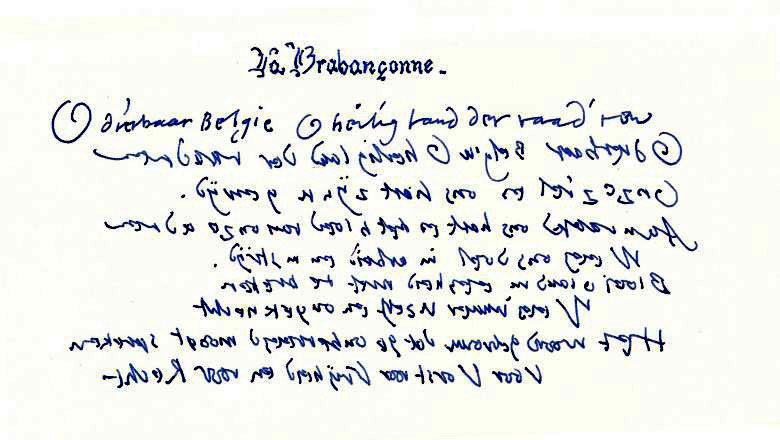 La Brabançonne.
O dierbaar Belgie O heilig land der vaad'ren
O dierbaar Belgie O heilig land der vaadren
Onze ziel en ons hart zijn u gewijd.
Aanvaard ons hart en het bloed van onze adren
Wees ons doel in arbeid en in strijd.
Bloei o land in eendracht niet te breken
Wees immer uzelf en ongeknecht
Het woord getrouw dat ge onbevreesd moogt spreken
Voor Vorst voor Vrijheid en voor Recht-